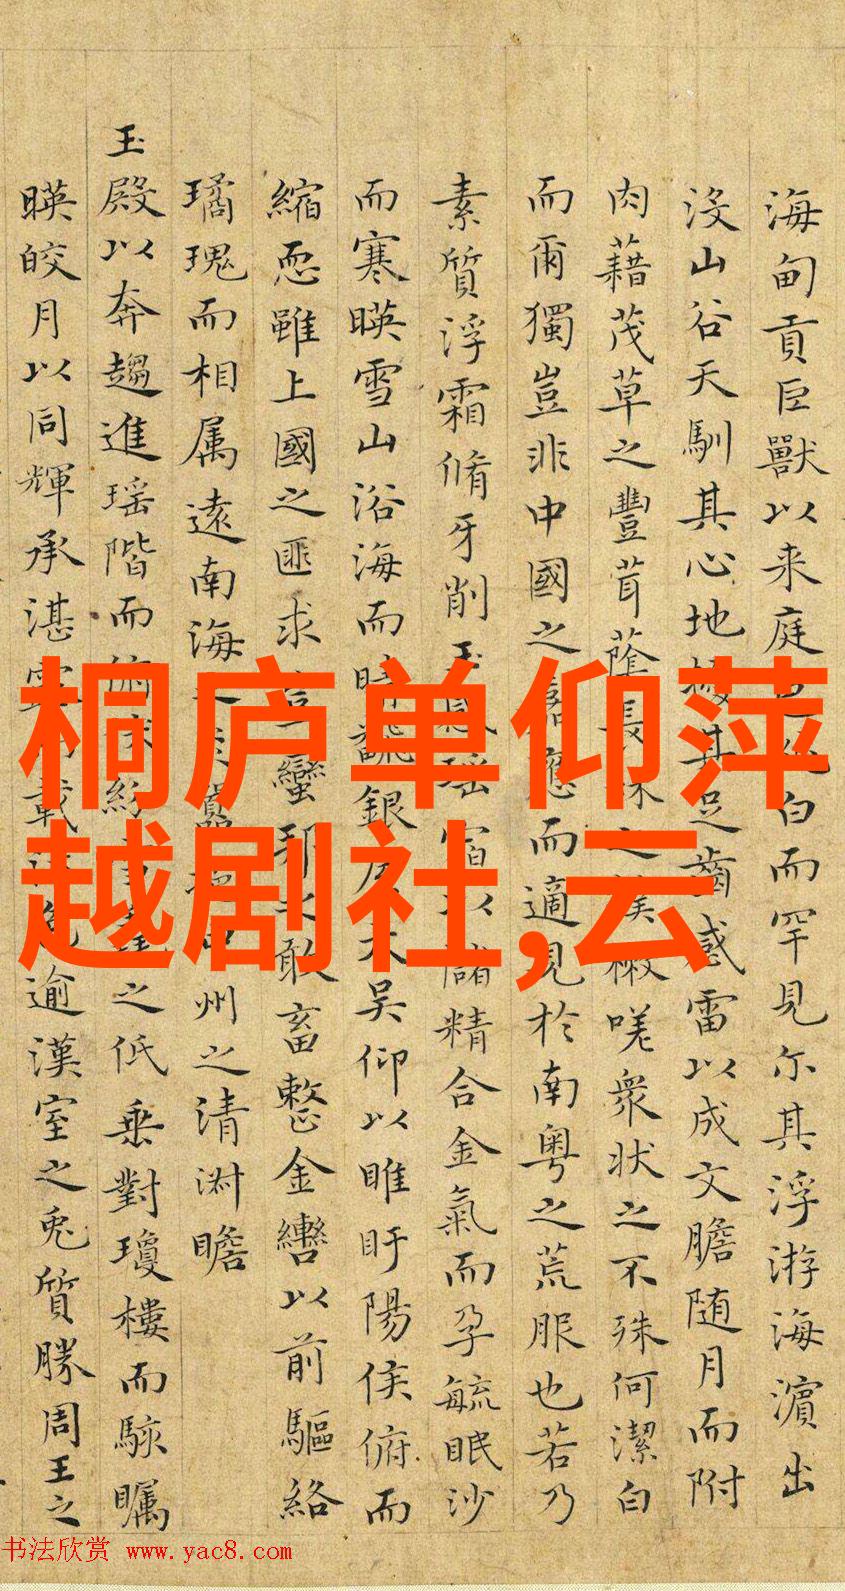 海甸貢巨獸以来庭
沒山谷天馴其心地
肉藉茂草之豐茸蔭長林之
而爾獨豈非中國之
素質浮霜脩牙削玉
而寒暎雪山浴海而時
縮恧雖上國之匪求豈蠻邦之敢畜整金轡以前驅絡
璚瑰而相属遠南海之
玉殿以奔趨進瑶階而俯
暎皎月以同輝承湛
白而罕見尔其浮游海濵出
其足齒感雷以成文膽随月而附
嘆衆状之不殊何潔白
應而適見於南粤之荒服也若乃
以儲精合金氣而孕毓眠沙
銀
大吴仰以睢盱陽侯俯而
州之清淵瞻
之低乗對瓊樓而駭矚
逾漢室之兎質勝周王之
桐庐单仰萍
越剧社,云
书法欣赏 www.yac8.com